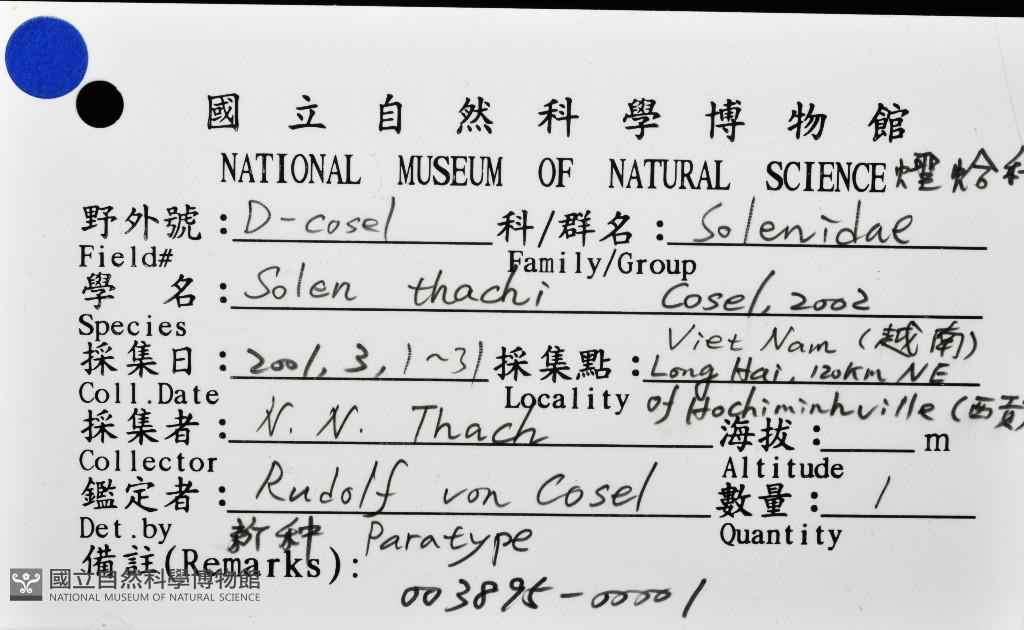 國立自然科學博物館
NATIONAL MUSEUM OF NATURAL SCIENCE
野外號：D-cosel 科/群名：Solenidae
Field# Family/Group
學名：Solen thachi Cosel, 2002
Species
Viet Nam (越南)
採集日：2001, 3, 1~31 採集點：Long Hai, 120km NE
Coll.Date Locality of Hochiminhville (西貢
採集者：N. N. Thach 海拔： m
Collector Altitude
鑑定者：Rudolf von Cosel 數量：1
Det.by 新种 Paratype Quantity
備註(Remarks):
003895-00001
國立自然科學博物館
NATIONAL MUSEUM OF NATURAL SCIENCE